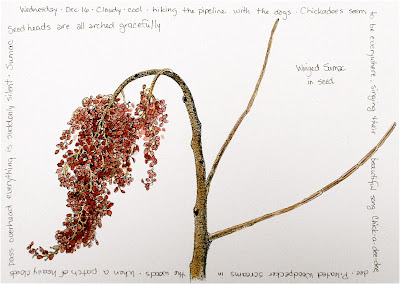 Wednesday · Dec 16 · Cloudy · cool · hiking the pipeline with the dogs · Chickadees seem
to be everywhere · singing their beautiful song Chick·a·dee·dee
dee · Pileated Woodpecker screams in the woods · When a patch of heavy clouds
pass overhead everything is suddenly silent · Sumac
Seed heads are all arched gracefully
Winged Sumac
in seed